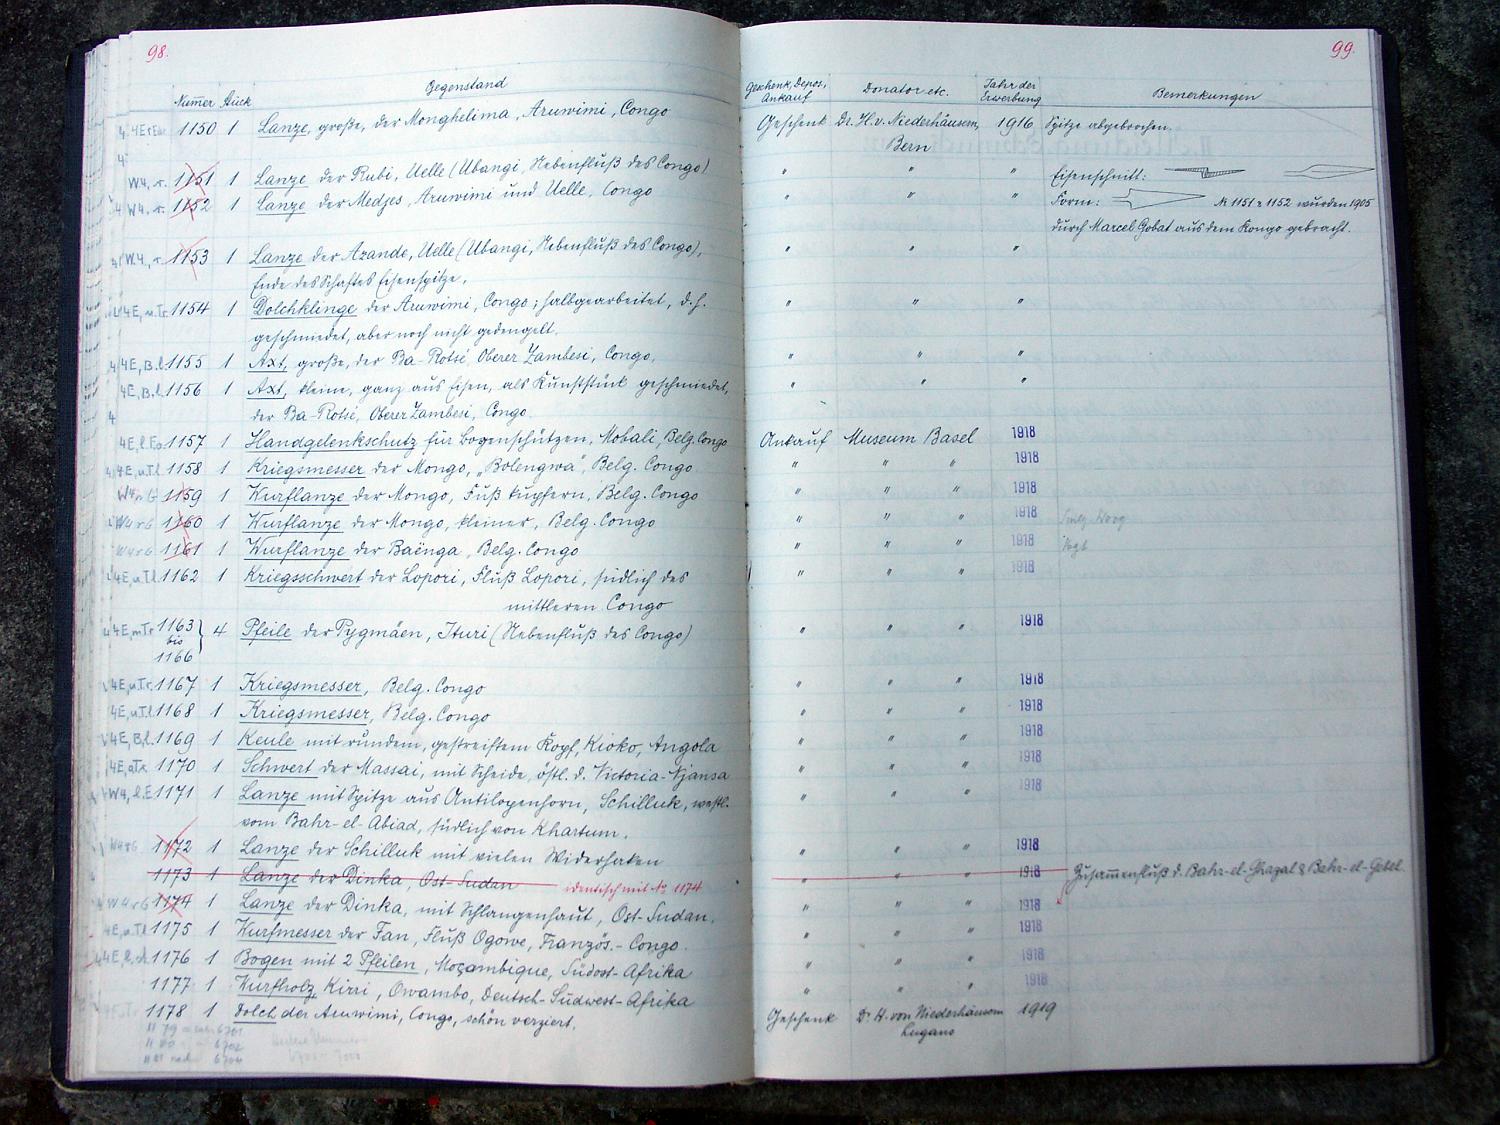 98.
99.
Numer Stück Gegenstand Geschenk, Depos., Ankauf Donator etc. Jahr der Erwerbung Bemerkungen
1150 1 Lanze, große, der Monghelima, Aruwimi, Congo Geschenk Dr. H. v. Niederhäusern, 1916 Spitze abgebrochen.
Bern
W4, r. 1151 1 Lanze der Rubi, Uelle (Ubangi, Nebenfluß des Congo) " " " Eisenschnitt:
W4. r. 1152 1 Lanze der Medjes, Aruwimi und Uelle, Congo " " " Form: № 1151 & 1152 wurden 1905
durch Marcel Gobat aus dem Kongo gebracht.
W4, r. 1153 1 Lanze der Azande, Uelle (Ubangi, Nebenfluß des Congo), " " "
Ende des Schaftes Eisenspitze.
4E, u.Tr. 1154 1 Dolchklinge der Aruwimi, Congo; halbgearbeitet, d.h. " " "
geschmiedet, aber noch nicht gedengelt.
4E, B.l. 1155 1 Axt, große, der Ba-Rotsé, Oberer Zambesi, Congo, " " "
4E, B.l. 1156 1 Axt, kleine, ganz aus Eisen, als Kunststück geschmiedet, " " "
der Ba-Rotsé, Oberer Zambesi, Congo.
1157 1 Handgelenkschutz für Bogenschützen, Mobali, Belg. Congo Ankauf Museum Basel 1918
4E, u.T.l. 1158 1 Kriegsmesser der Mongo, „Bolengwa", Belg. Congo " " " 1918
1159 1 Wurflanze der Mongo, Fuß kupfern, Belg. Congo " " " 1918
W4 r 6 1160 1 Wurflanze der Mongo, kleiner, Belg. Congo " " " 1918
W4 r 6 1161 1 Wurflanze der Baënga, Belg. Congo " " " 1918 Vogt
4E, u.T.l. 1162 1 Kriegsschwert der Lopori, Fluß Lopori, südlich des " " " 1918
mittleren Congo
4E, m.Tr. 1163 4 Pfeile der Pygmäen, Ituri (Nebenfluß des Congo) " " " 1918
bis
1166
4E, u.Tr. 1167 1 Kriegsmesser, Belg. Congo " " " 1918
4E, u.T.l. 1168 1 Kriegsmesser, Belg. Congo " " " 1918
4E, B.l. 1169 1 Keule mit rundem, gestreiftem Kopf, Kioko, Angola " " " 1918
1170 1 Schwert der Massai, mit Scheide, östl. d. Victoria-Njansa " " " 1918
W4, l. E 1171 1 Lanze mit Spitze aus Antilopenhorn, Schilluk, westl. " " " 1918
vom Bahr-el-Abiad, südlich von Khartum.
W4 r 6 1172 1 Lanze der Schilluk mit vielen Widerhaken " " " 1918
1173 1 Lanze der Dinka, Ost-Sudan identisch mit № 1174 " " " 1918 Zusammenfluß d. Bahr-el-Ghazal & Bahr-el-Gebel
W4 r 6 1174 1 Lanze der Dinka, mit Schlangenhaut, Ost-Sudan. " " " 1918
4E, u.T.l. 1175 1 Wurfmesser der Fan, Fluß Ogowe, Französ.-Congo. " " " 1918
1176 1 Bogen mit 2 Pfeilen, Moçambique, Südost-Afrika " " " 1918
1177 1 Wurfholz, Kirri, Owambo, Deutsch-Südwest-Afrika " " " 1918
1178 1 Dolch der Aruwimi, Congo, schön verziert. Geschenk Dr. H. von Niederhäusern 1919
Lugano